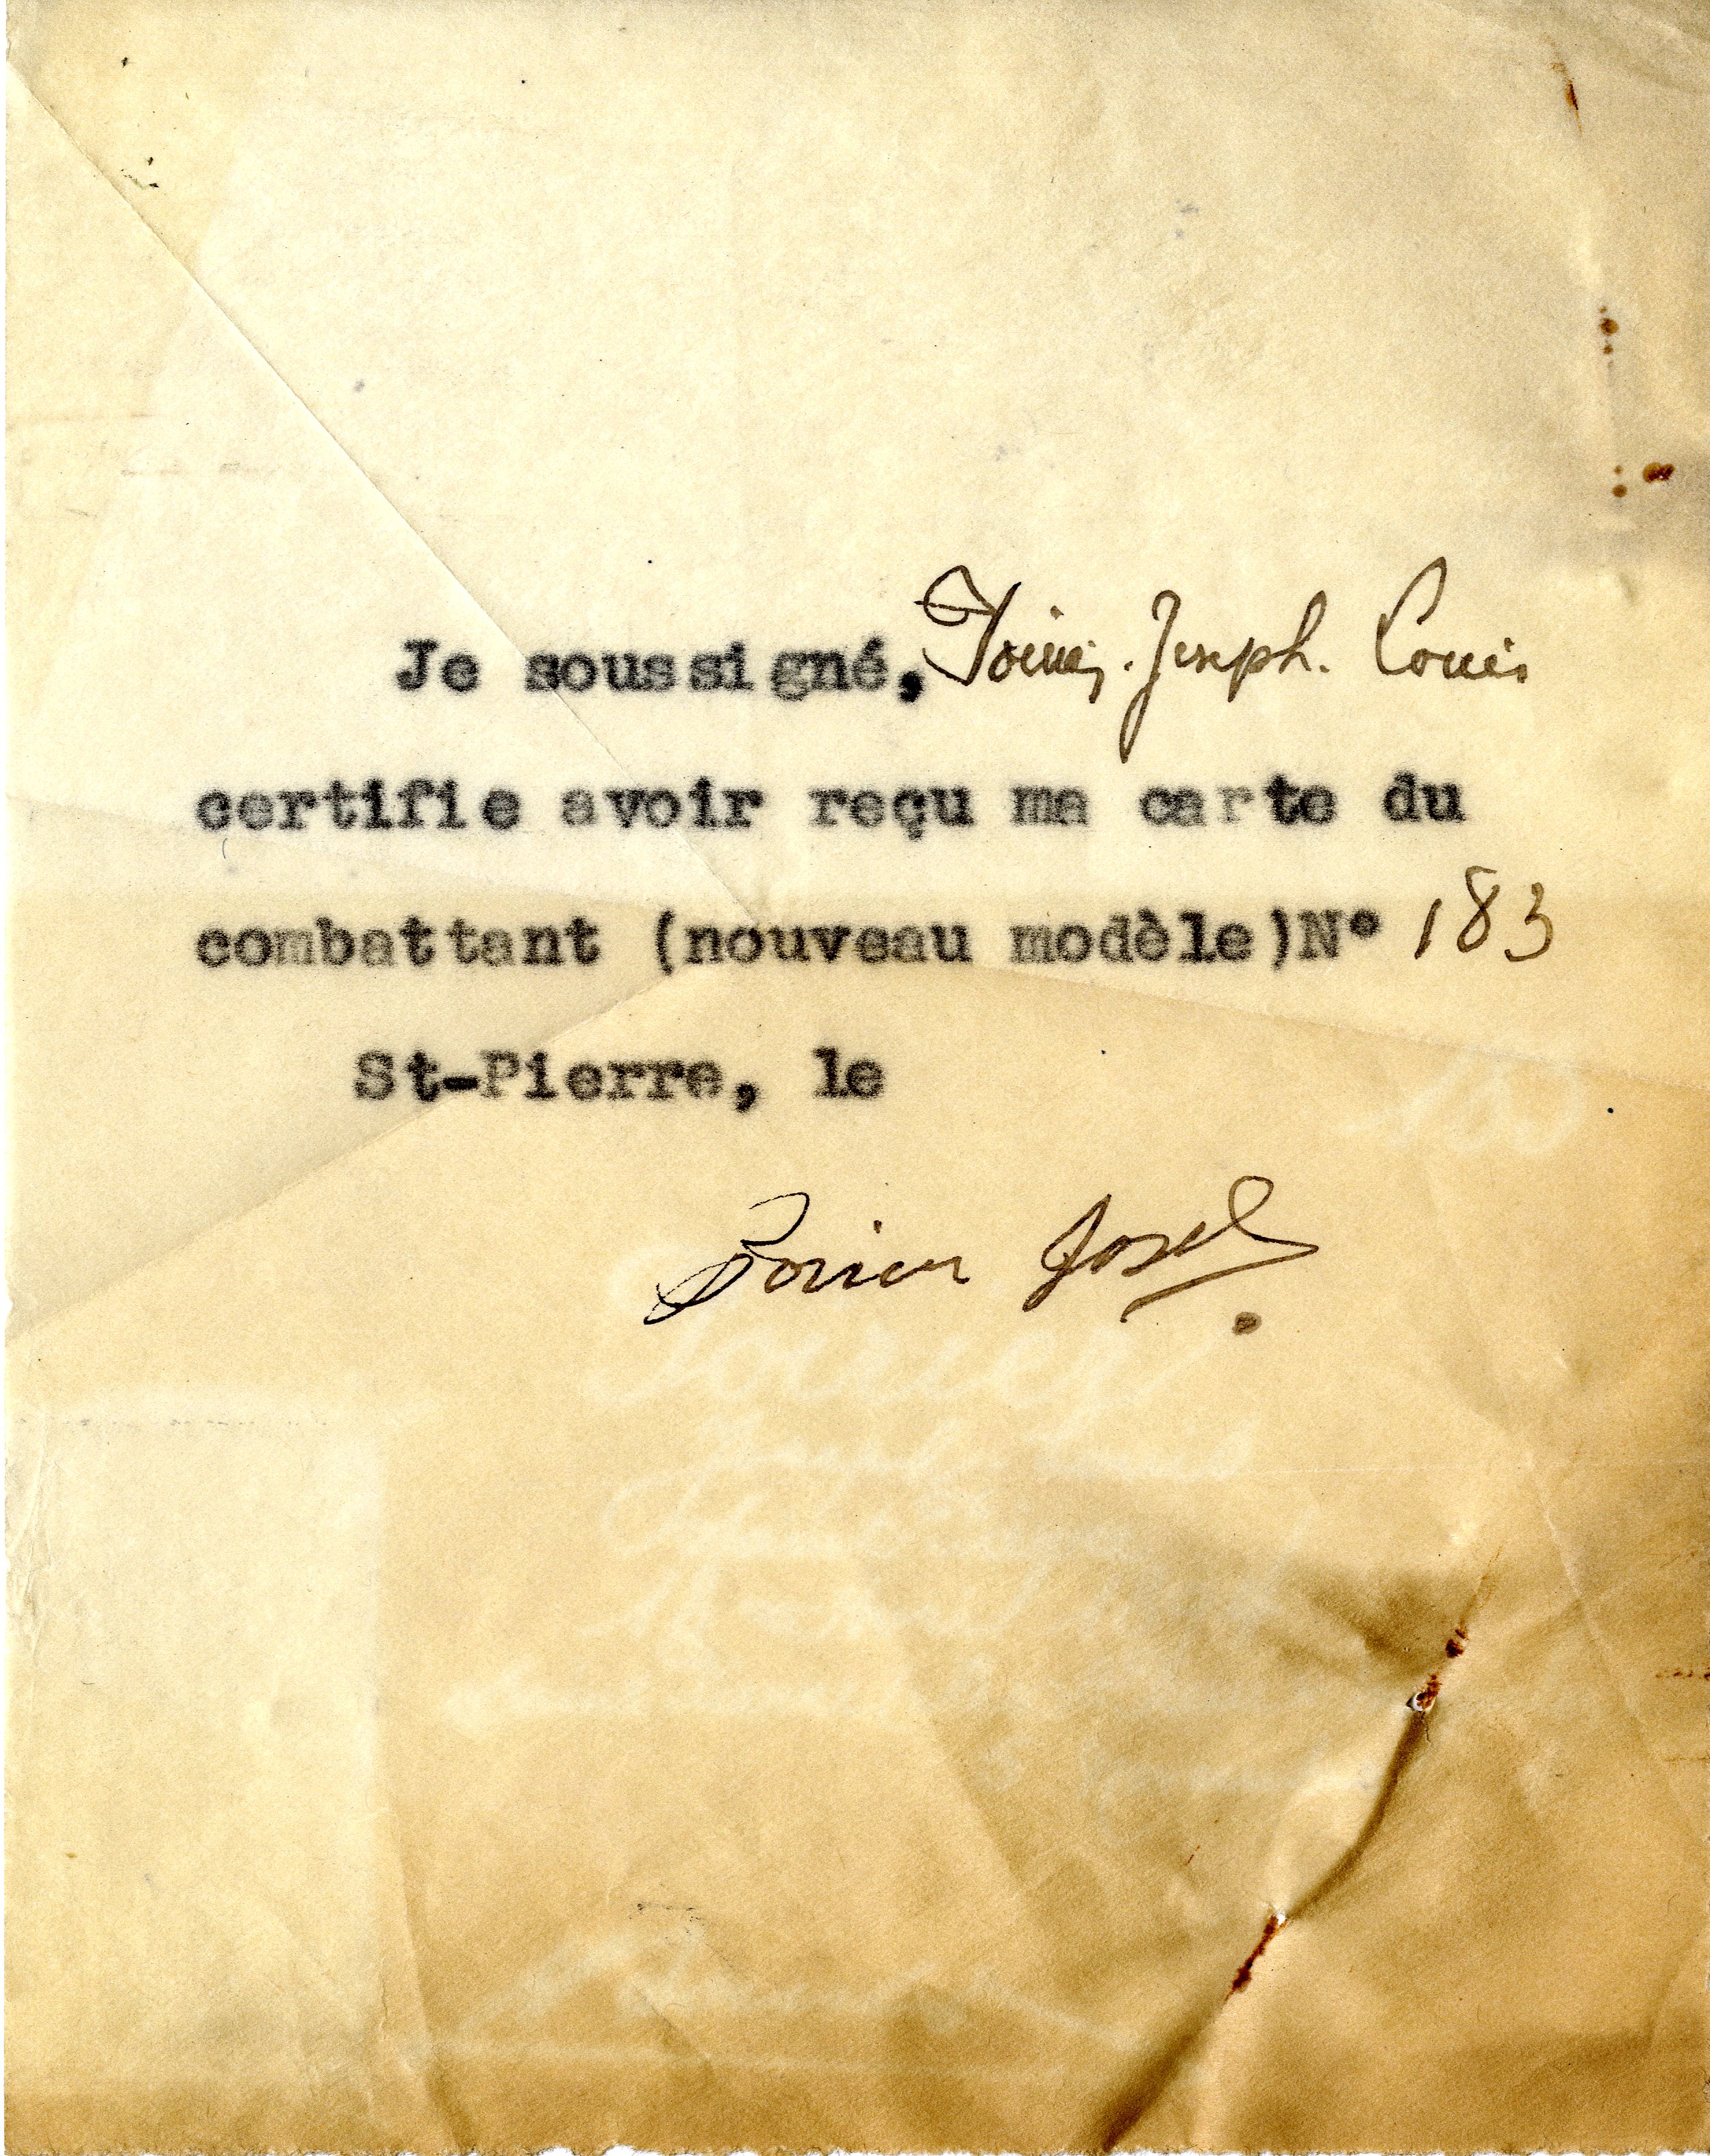 Je soussigné, Joseph. Louis
certifie avoir reçu ma carte du
combattant (nouveau modèle)N° 183
St-Pierre, le